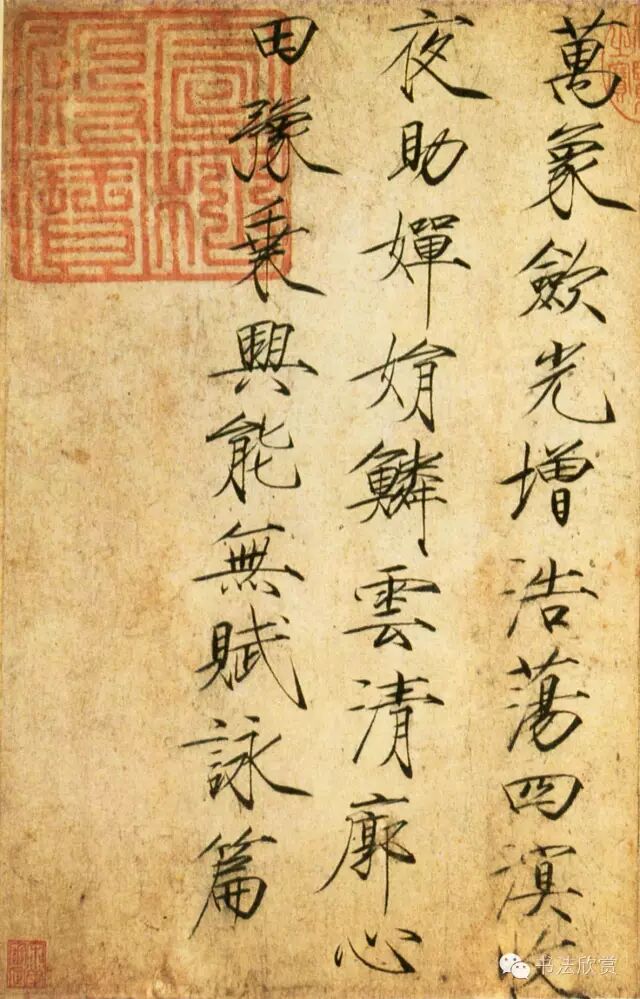 萬象歛光增浩蕩四溟收
夜助嬋娟鱗雲清廓心
田豫乗興能無賦詠篇
书法欣赏